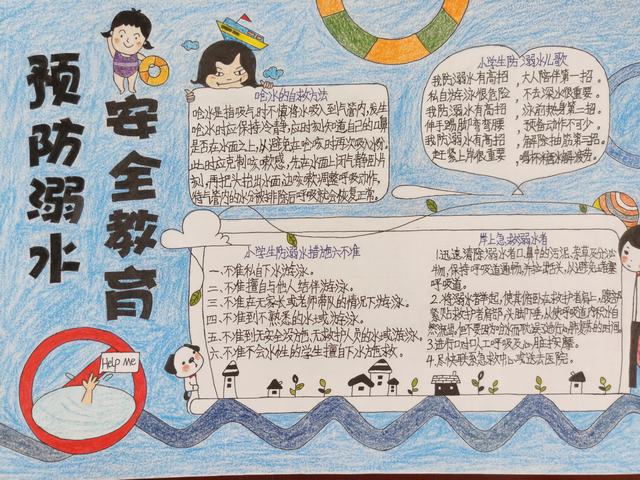 预防溺水
安全教育
呛水的自救方法
呛水是指吸气时不慎将水吸入到气管内,发生
呛水时应保持冷静,应时刻知道自己的口鼻
是否在水面上,以避免在呛咳时再次吸入水。
此时应克制咳嗽感,先在水面上闭气静卧片
刻,再把头抬出水面边咳嗽调整呼吸动作,
待气管内的水分被排除后呼吸就会恢复正常。
小学生防溺水儿歌
我防溺水有高招,大人陪伴第一招。
私自游泳很危险,不去深水很重要。
我防溺水有高招,泳前热身第二招。
伸手踢脚弯弯腰,预备动作不可少。
我防溺水有高招,解除抽筋第三招。
赶紧上岸很重要,喝杯糖水解疲劳。
小学生防溺水措施六不准
一.不准私自下水游泳。
二.不准擅自与他人结伴游泳。
三.不准在无家长或老师带队的情况下游泳。
四.不准到不熟悉的水域游泳。
五.不准到无安全设施、无救护人员的水域游泳。
六.不准不会水性的学生擅自下水施救。
岸上急救溺水者
1.迅速清除溺水者口、鼻中的污泥、杂草及分泌
物,保持呼吸道通畅,并拉出舌头,以避免堵塞
呼吸道。
2.将溺水者举起,使其俯卧在救护者肩上,腹部
紧贴救护者肩部,头脚下垂,以使呼吸道内积水自
然流出,但不要因为控水而耽误了进行心肺复苏的时间。
3.进行口对口人工呼吸及心脏按摩。
4.尽快联系急救中心或送去医院。
Help me